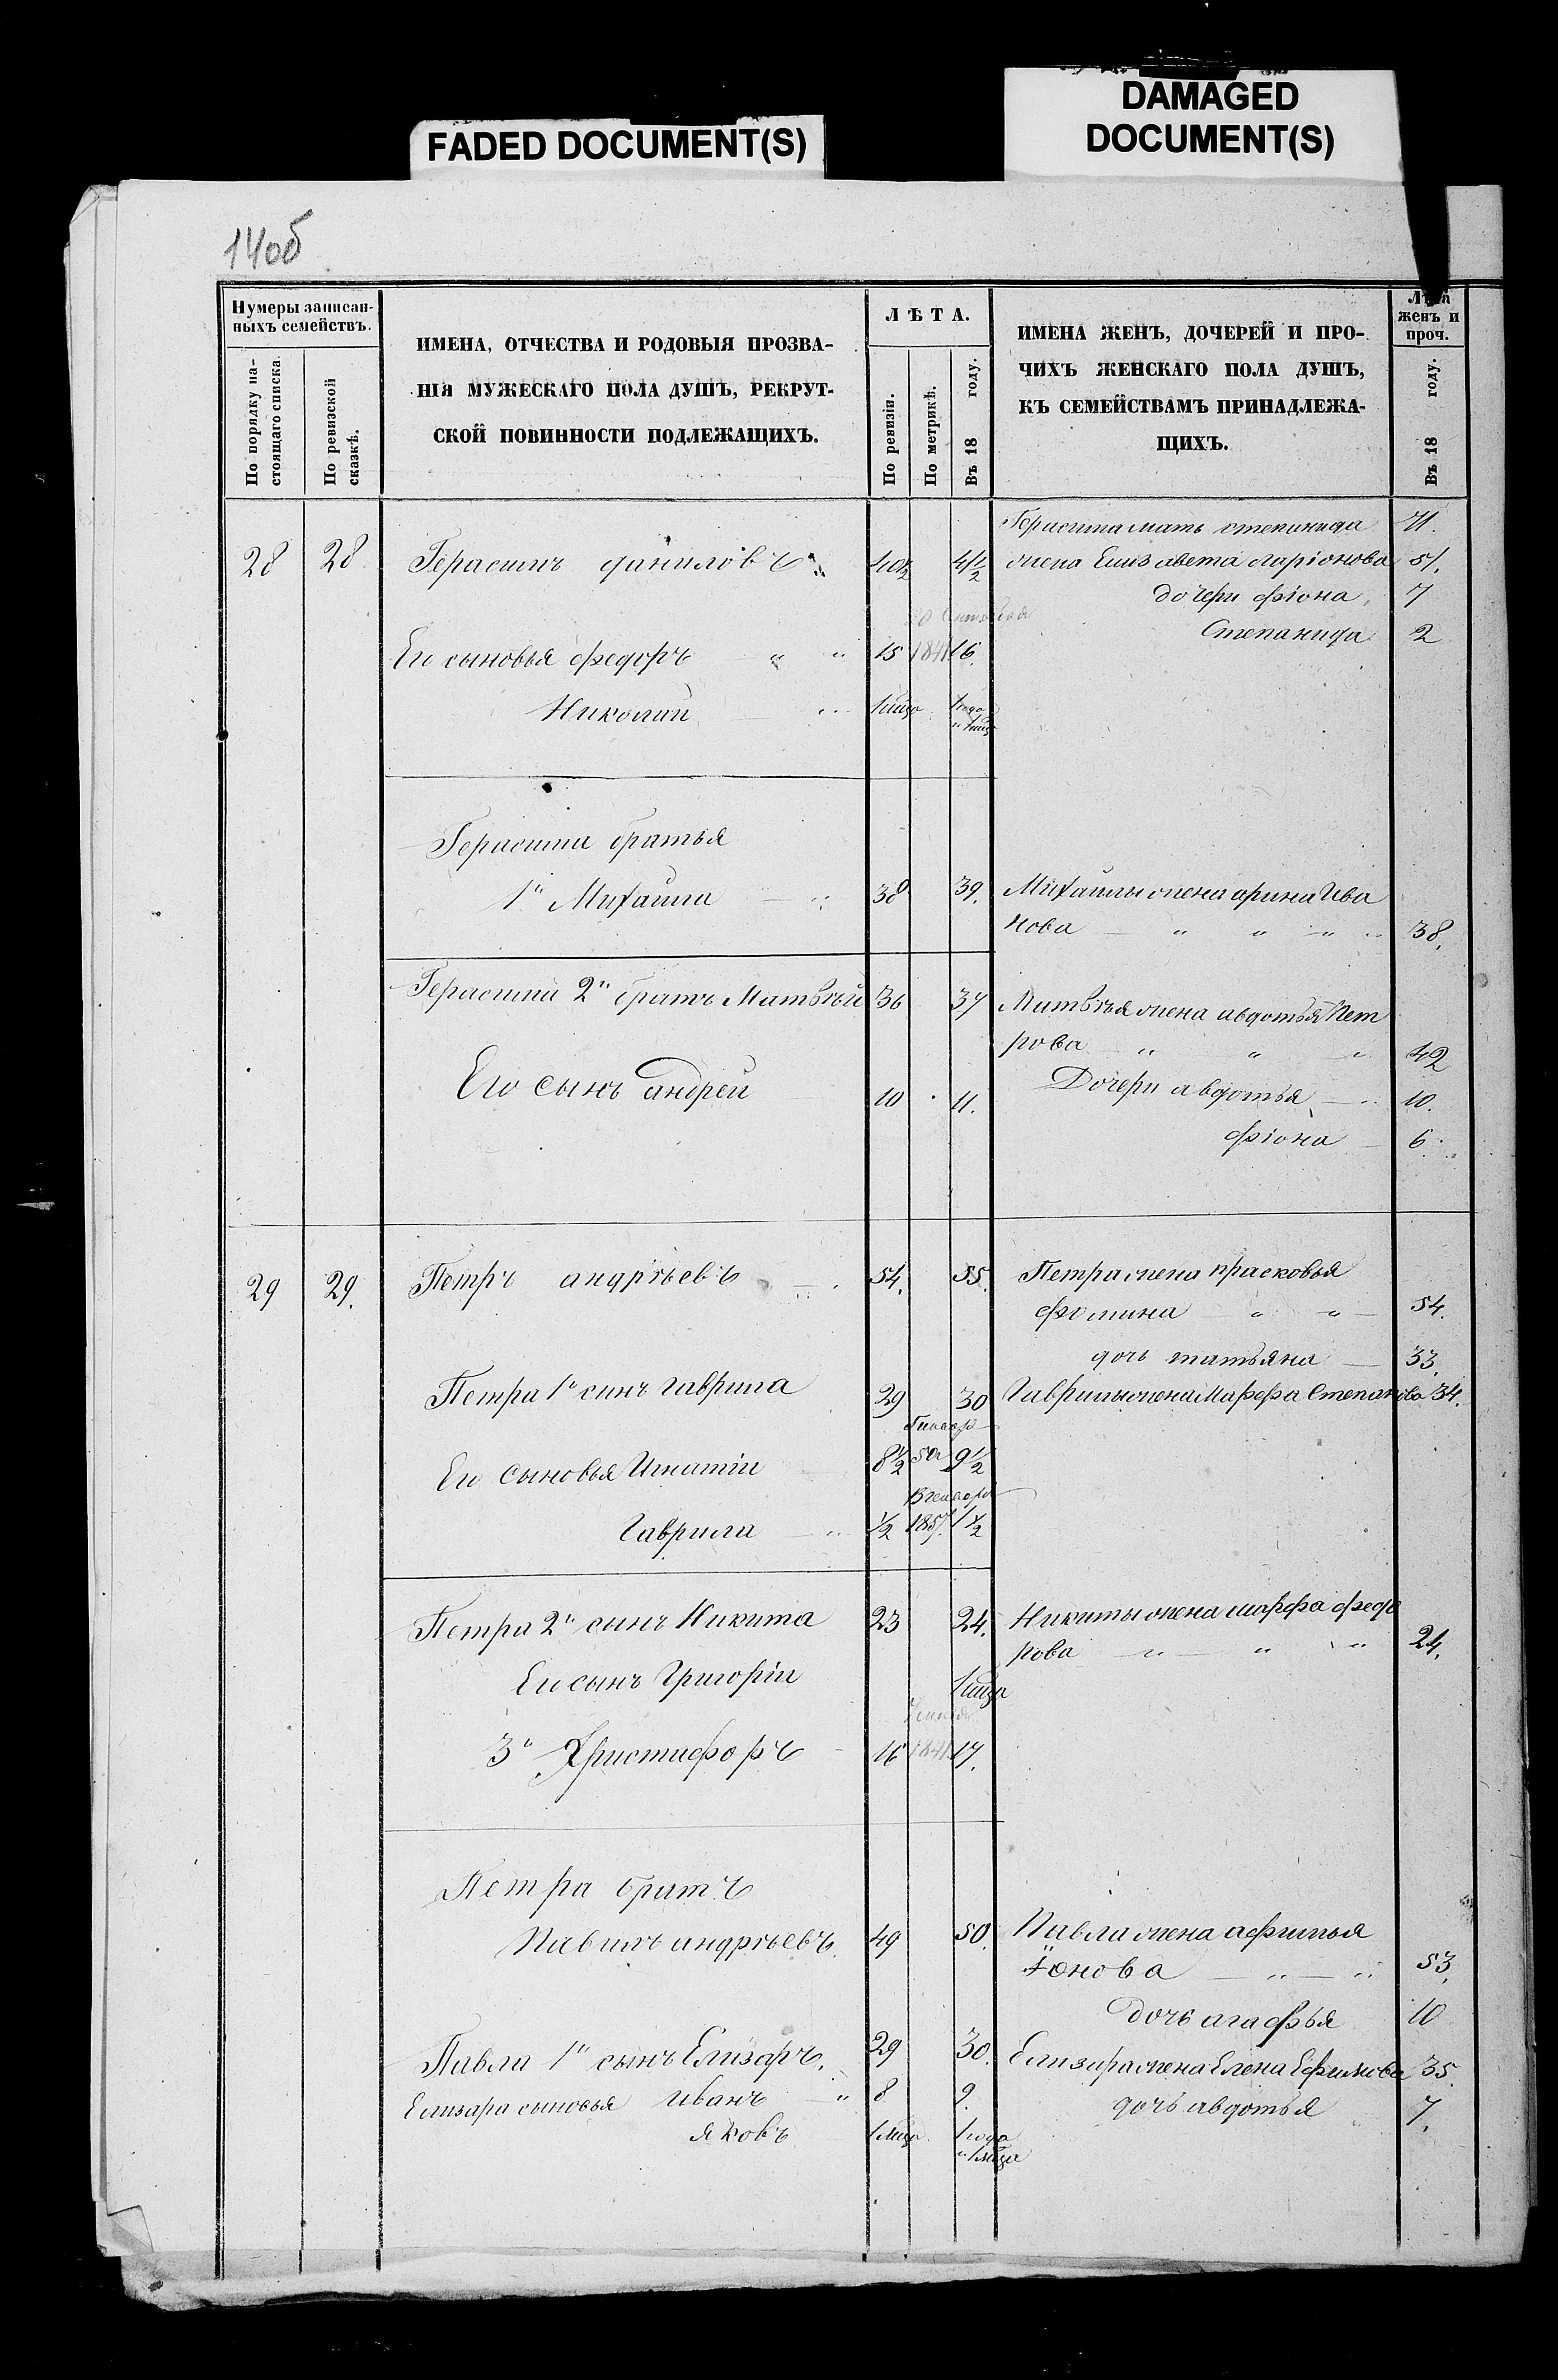 FADED DOCUMENT(S)
DAMAGED
DOCUMENT(S)
14об
Нумеры записан-
ныхъ семействъ.
По порядку на-
стоящаго списка.
По ревизской
сказкѣ.
ИМЕНА, ОТЧЕСТВА И РОДОВЫЯ ПРОЗВА-
НІЯ МУЖЕСКАГО ПОЛА ДУШЪ, РЕКРУТ-
СКОЙ ПОВИННОСТИ ПОДЛЕЖАЩИХЪ.
ЛѢТА.
По ревизіи.
По метрикѣ.
Въ 18 году.
ИМЕНА ЖЕНЪ, ДОЧЕРЕЙ И ПРО-
ЧИХЪ ЖЕНСКАГО ПОЛА ДУШЪ,
КЪ СЕМЕЙСТВАМЪ ПРИНАДЛЕЖА-
ЩИХЪ.
Лѣта
женъ и
проч.
Въ 18 году.
Герасима мать степанида 71.
28 28 Герасимъ даниловъ 40½ 41½ жена Елизавета ларіонова
дочери фіона 7
Степанида 2
Его сыновья федоръ " " 15 1841 16.
Николай 1 мца 1 года
и 1 мца
Герасима братья
1й Михайла 38 39. Михайлы жена арина Ива
нова " " " 38.
Герасима 2й братъ Матвѣй 36 37 Матвѣя жена авдотья Пет
рова " " " 42
Его сынъ андрей 10 11. Дочери авдотья 10.
фіона 6.
29 29. Петръ андрѣевъ 54. 55. Петра жена прасковья
фомина " " 54.
дочь татьяна 33.
Петра 1й сынъ гаврила 29 30 Гаврилы жена Марфа Степанова 34.
Его сыновья Игнатій 8½ 9½
Гаврила ½ 1857. 1½
Петра 2й сынъ Никита 23 24. Никиты жена марфа федо
рова " " " 24.
Его сынъ Григорій 1 мца
3й Христифоръ 16 1841 17.
Петра братъ
Павилъ андрѣевъ 49 50. Павла жена афимья
Іонова " " 53.
Дочь агафья 10
Павла 1й сынъ Елизаръ. 29 30. Елизара жена Елена Ефимова 35.
Елизара сыновья иванъ " 8 9. дочь авдотья 7.
яковъ 1 мца. 1 года
и 1 мца